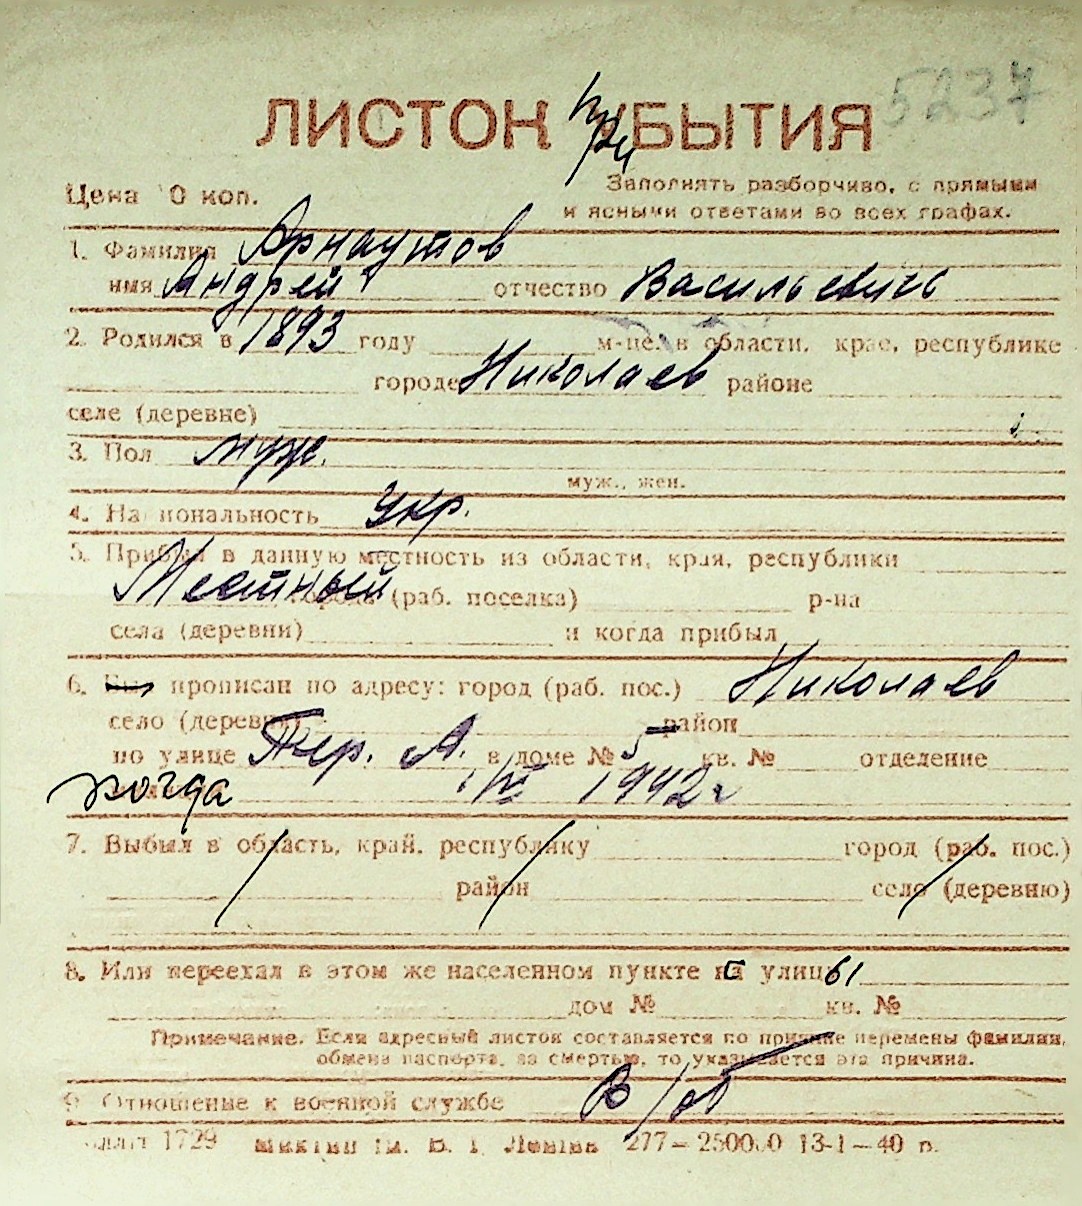 5237
ЛИСТОК при БЫТИЯ
Цена 0 коп.
Заполнять разборчиво, с прямыми
и ясными ответами во всех графах.
1. Фамилия Арнаутов
имя Андрей отчество Васильевич
2. Родился в 1893 году м-це в области, крае, республике
городе Николаев районе
селе (деревне)
3. Пол муж.
муж., жен.
4. Национальность Укр.
5. Прибыл в данную местность из области, края, республики
Местный города (раб. поселка) р-на
села (деревни) и когда прибыл
6. Был прописан по адресу: город (раб. пос.) Николаев
село (деревня) район
по улице Тер. А. в доме № 5 кв. № отделение
когда 1942 г
7. Выбыл в область, край, республику город (раб. пос.)
район село (деревню)
8. Или переехал в этом же населенном пункте с улицы
дом № кв. №
Примечание. Если адресный листок составляется по причине перемены фамилии,
обмена паспорта, за смертью, то указывается эта причина.
9 Отношение к военной службе в/об
1729 277—250000 13-1—40 г.